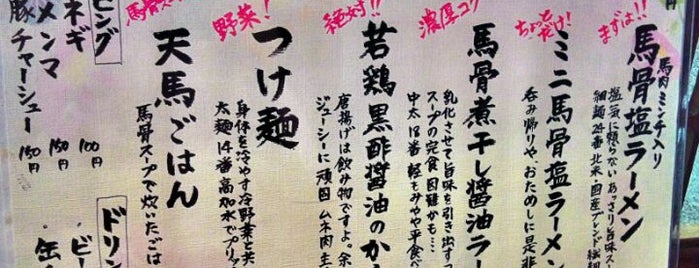 円
まずは!!
馬肉ミンチ入り
馬骨塩ラーメン
塩気に頼らないあっさり旨味ス
細麺24番 北米・国産ブレンド
ちょっとだけ!
ミニ馬骨塩ラーメン
呑み帰りや、おためしに是非
濃厚コク
馬骨煮干し醤油ラー
乳化させて旨味を引き出すっ
スープの定食困難かも…
中太18番 軽もみや平食べ
絶対!!
若鶏黒酢醤油のから
唐揚げは飲み物ですよ。余
ジューシーに頑固 ムネ肉
野菜!
つけ麺
身体を冷やす冷野菜と共
太麺14番高加水でプリプ
馬骨スー
天馬ごはん
馬骨スープで炊いたごは
ピング
ネギ 100円
メンマ 150円
豚チャーシュー 150円
ドリン
ビー
缶